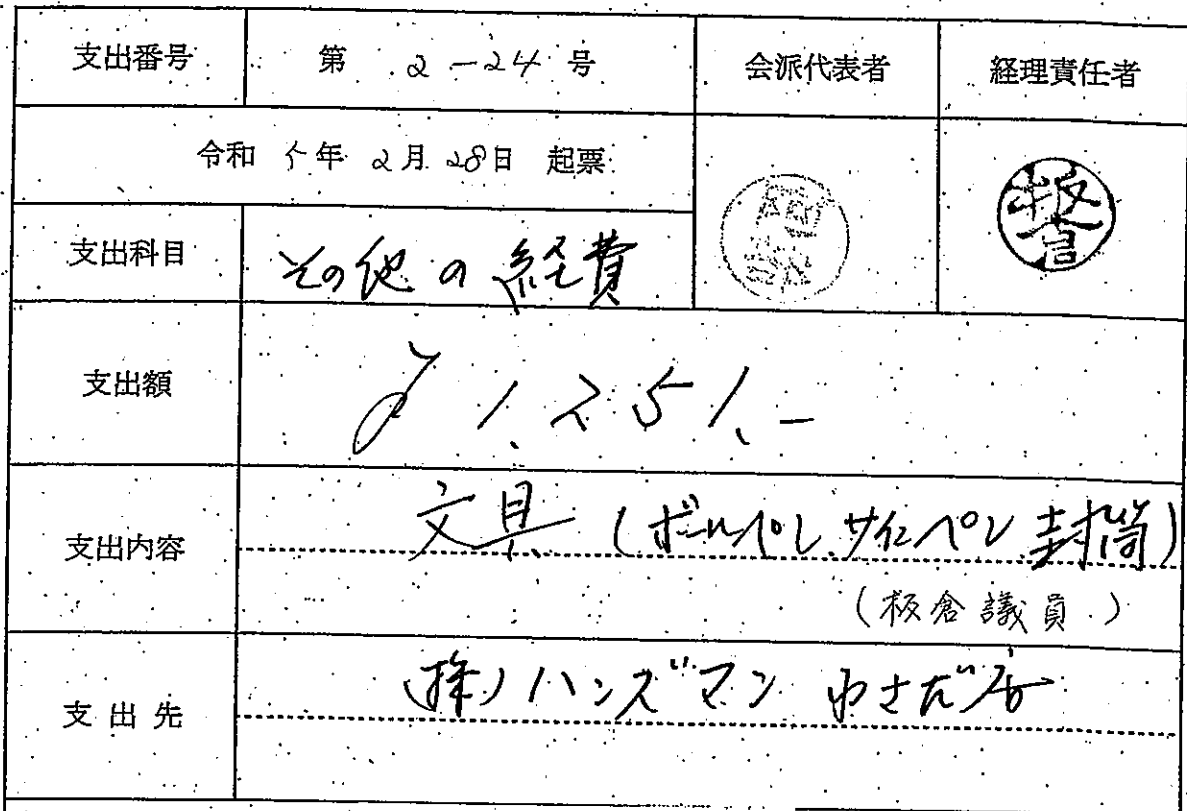 支出番号 第 2-24 号 会派代表者 経理責任者
令和 5年 2月 28日 起票
板倉
支出科目 その他の経費
支出額 ¥1,251,-
支出内容 文具(ボールペン、サインペン、封筒)
(板倉議員)
支出先 (株)ハンズマン わさだ店